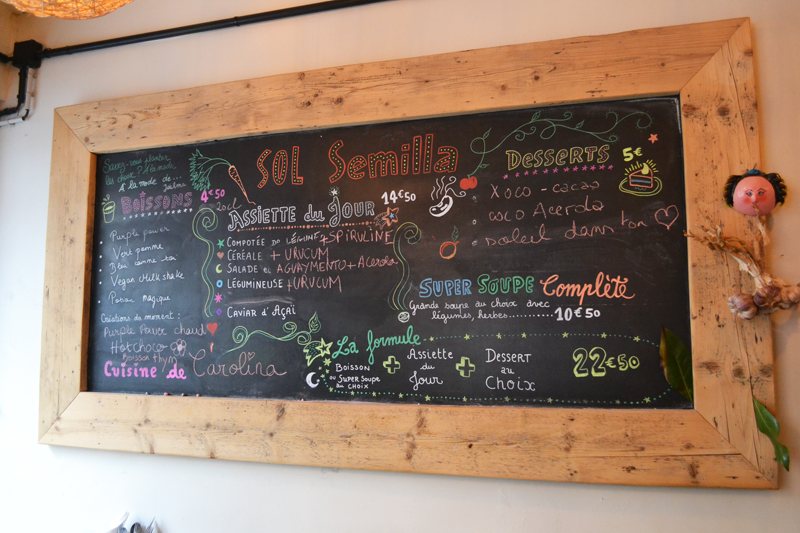 SOL Semilla
Savez-vous planter
les choux ? A la mode,
A la mode de ...
BOISSONS
4€50
20cl
Purple power
Vert pomme
Vegan Milk shake
Potion magique
Créations du moment :
Purple Power chaud
Hot choco
Boisson thym
Cuisine de Carolina
ASSIETTE du JOUR
14€50
COMPOTÉE DE LÉGUME + SPIRULINE
CÉRÉALE + URUCUM
SALADE et AGUAYMENTO + Acerola
LÉGUMINEUSE + URUCUM
CAVIAR D'AÇAÏ
DESSERTS 5€
XOCO - cacao
coco Acerola
soleil dans ton
SUPER SOUPE Complète
Grande soupe au choix avec
légumes, herbes........... 10€50
La formule
BOISSON
ou SUPER SOUPE
AU CHOIX
+
Assiette
du
Jour
+
Dessert
au
Choix
22€50